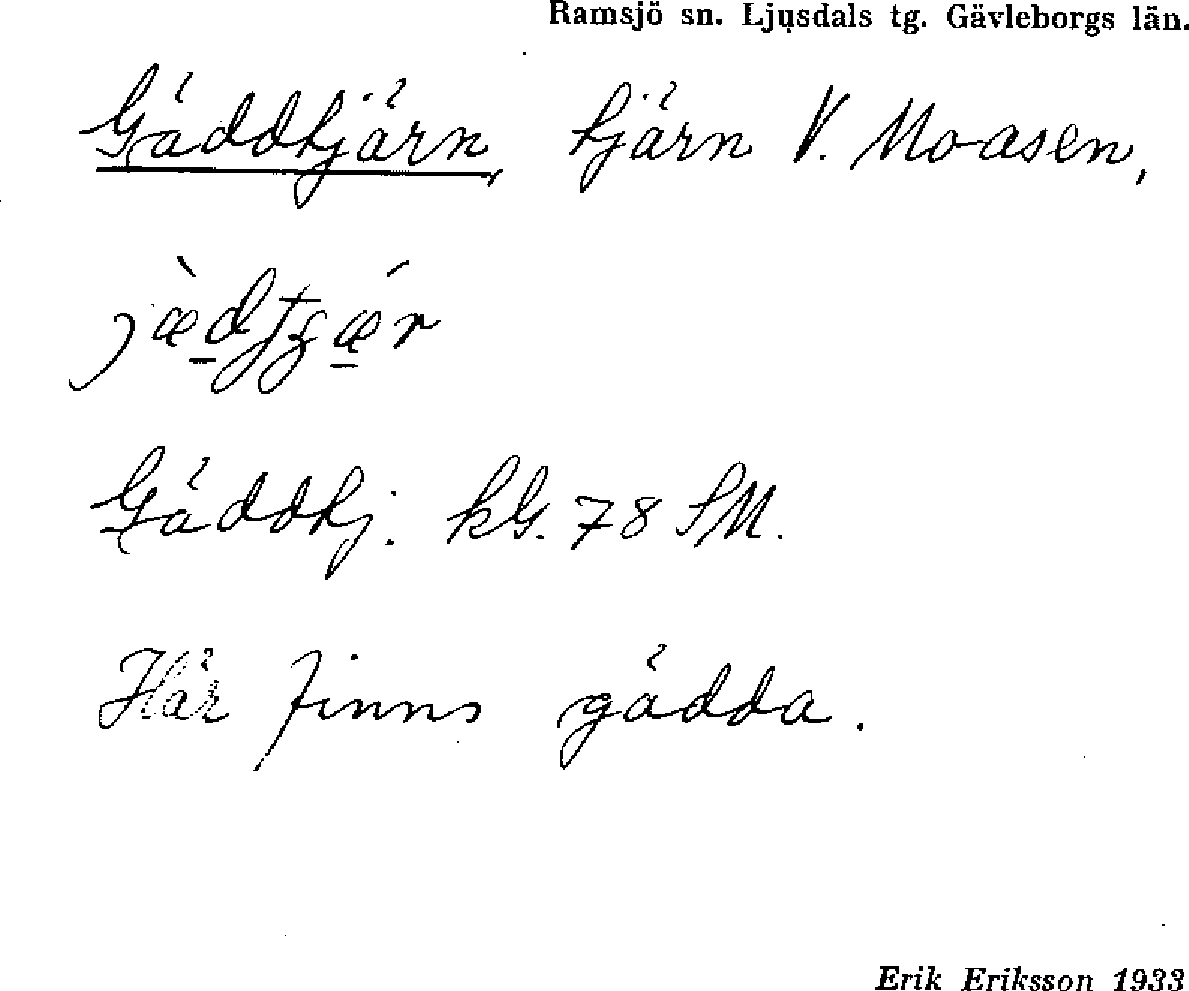 Ramsjö sn. Ljusdals tg. Gävleborgs län.
Gäddtjärn, tjärn V. Moasen,
Gäddtj. kG. 78 SM.
Här finns gädda.
Erik Eriksson 1933